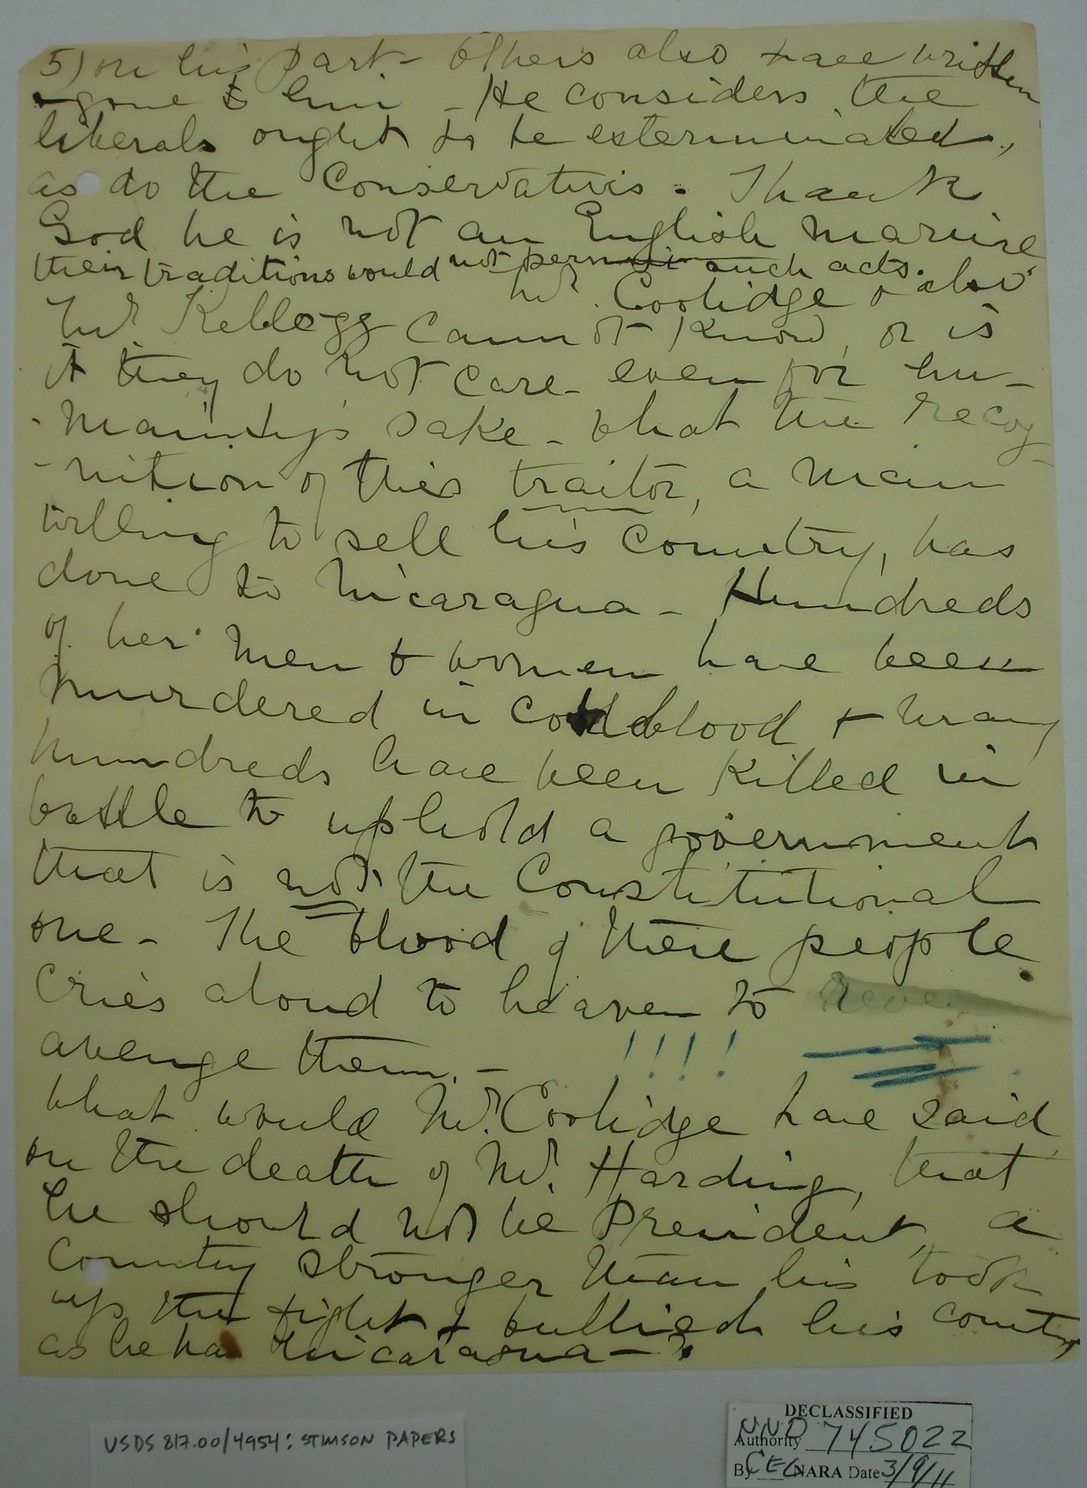 5) on his part - Others also have written
& gone to him - He considers the
liberals ought to be esterminated,
as do the Conservativis. Thank
God he is not an English marine
their traditions would not permit such acts.
Mr. Coolidge & also
Mr Kellogg cannot know, or is
it they do not care - even for hu-
-manity's sake - what the recog-
-nition of this traitor, a man
willing to sell his country, has
done to Nicaragua - Hundreds
of her men & women have been
murdered in cold blood & many
hundreds have been killed in
battle to uphold a government
that is not the Constitutional
one - The blood of these people
cries aloud to heaven to
avenge them. - !!!!
what would Mr. Coolidge have said
on the death of Mr. Harding, that
he should not be President, a
Country stronger than his took
up the fight & bullied his country
as he has Nicaragua - ?
USDS 817.00/4954: STIMSON PAPERS
DECLASSIFIED
Authority NND 745022
By CEC NARA Date 3/9/11